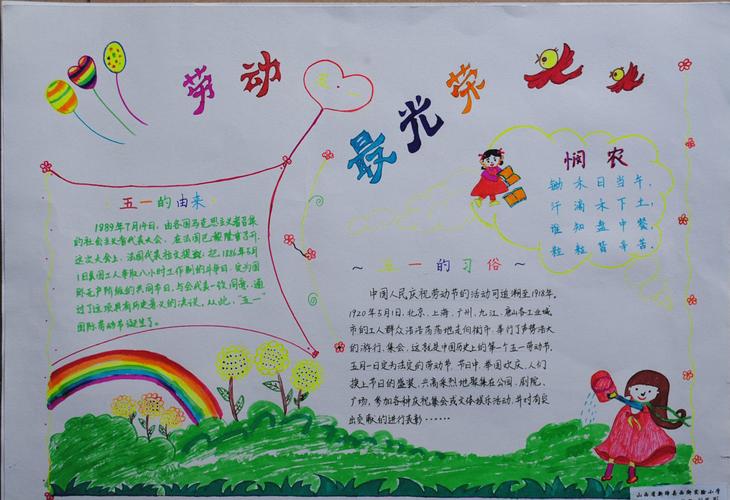 劳动
最光荣
五一的由来
1989年7月14日，由各国马克思主义者召集
的社会主义者代表大会，在法国巴黎隆重召开。
这次大会上，法国代表拉文提议：把1886年5月
1日美国工人争取八小时工作制的斗争日，定为国
际无产阶级的共同节日，与会代表一致同意，通
过了这项具有历史意义的决议。从此，"五一"
国际劳动节诞生了。
悯农
锄禾日当午，
汗滴禾下土，
谁知盘中餐，
粒粒皆辛苦。
～五一的习俗～
中国人民庆祝劳动节的活动可追溯至1918年。
1920年5月1日，北京、上海、广州、九江、唐山各工业城
市的工人群众浩浩荡荡地走向街市、举行了声势浩大
的游行、集会，这就是中国历史上的第一个五一劳动节。
五月一日定为法定的劳动节，节日中，举国欢庆，人们
换上节日的盛装，兴高采烈地聚集在公园、剧院、
广场，参加各种庆祝集会或文体娱乐活动，并对有突
出贡献的进行表彰……